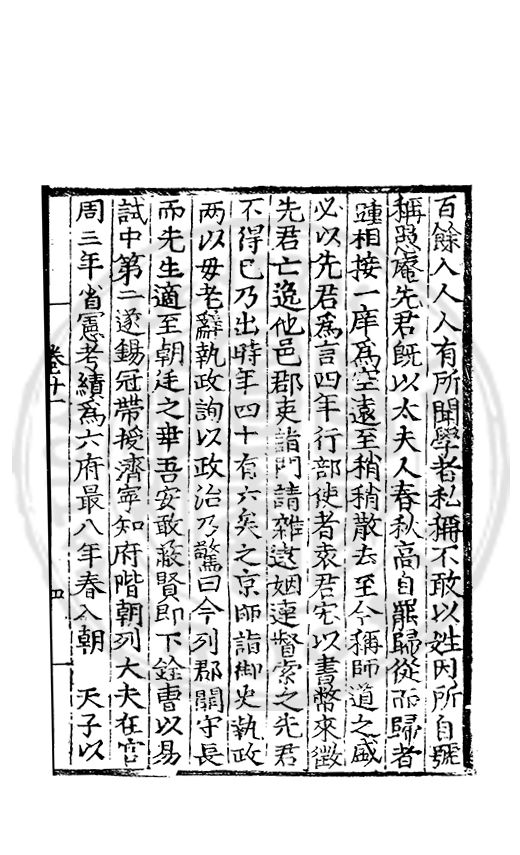 百餘人人人有所聞學者私稱不敢以姓因所自號
稱愚庵先君旣以太夫人春秋高自罷歸從而歸者
踵相接一庠爲空遠至稍稍散去至今稱師道之盛
必以先君爲言四年行部使者來君宅以書幣來徵
先君亡逸他邑郡吏詣門請雜遝姻連督索之先君
不得已乃出時年四十有六矣之京師詣御史執政
兩以毋老辭執政詢以政治乃驚曰今列郡闕守長
而先生適至朝廷之幸吾安敢蔽賢即下銓曹以易
試中第二遂錫冠帶授濟寧知府階朝列大夫在官
周三年省憲考績爲六府最八年春入朝　天子以
卷十一
四